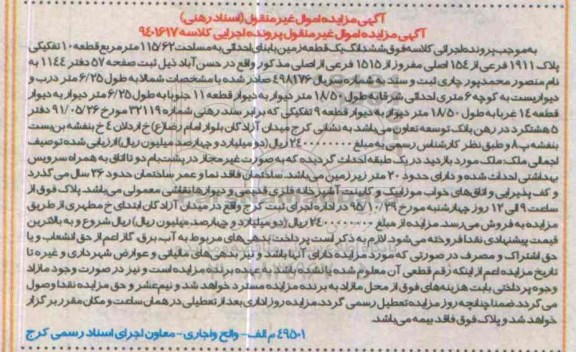 آگهی مزایده اموال غیر منقول (اسناد رهنی)
آگهی مزایده اموال غیر منقول پرونده اجرایی کلاسه ۹۴۰۱۶۱۷
به موجب پرونده اجرائی کلاسه فوق ششدانگ یک قطعه زمین با بنای احداثی به مساحت ۱۱۵/۶۲ متر مربع قطعه ۱۰ تفکیکی
پلاک ۱۹۱۱ فرعی از ۱۵۴ اصلی مفروز از ۱۵۱۵ فرعی از اصلی مذکور واقع در حسن آباد ذیل ثبت صفحه ۵۷ دفتر ۱۱۴۴ به
نام منصور محمدپور چاری ثبت و سند به شماره سریال ۴۹۸۱۷۶ صادر شده با مشخصات شمالا به طول ۶/۲۵ متر درب و
دیواریست به کوچه ۶ متری احداثی شرقا به طول ۱۸/۵۰ متر دیوار به دیوار قطعه ۱۱ جنوبا به طول ۶/۲۵ متر دیوار به دیوار
قطعه ۱۴ غربا به طول ۱۸/۵۰ متر دیوار به دیوار قطعه ۹ تفکیکی که برابر سند رهنی شماره ۳۲۱۱۹ مورخ ۹۱/۰۵/۲۶ دفتر
۵ هشتگرد در رهن بانک توسعه تعاون می‌باشد به نشانی کرج میدان آزادگان بلوار امام رضا(ع) خ اردلان ۴ خ بنفشه بن‌بست
بنفشه پ۸ و طبق نظر کارشناس رسمی به مبلغ ۲۴۰۰۰۰۰۰۰۰ ریال (دو میلیارد و چهارصد میلیون ریال) ارزیابی شده توصیف
اجمالی ملک ملک مورد بازدید در یک طبقه احداث گردیده که به صورت غیر مجاز در پشت بام دو تا اتاق به همراه سرویس
بهداشتی احداث شده و دارای حدود ۲۰ متر زیرزمین می‌باشد. ساختمان فاقد نما و عمر ساختمان حدود ۲۶ سال می گذرد
و کف پذیرایی و اتاق‌های خواب موزاییک و کابینت آشپزخانه فلزی قدیمی و دیوارها نقاشی معمولی می‌باشد. پلاک فوق از
ساعت ۹ الی ۱۲ روز چهارشنبه مورخ ۹۵/۱۰/۲۹ در اداره اجرای ثبت کرج واقع در میدان آزادگان ابتدای خ مطهری از طریق
مزایده به فروش می‌رسد. مزایده از مبلغ ۲۴۰۰۰۰۰۰۰۰ ریال (دو میلیارد و چهارصد میلیون ریال) ریال شروع و به بالاترین
قیمت پیشنهادی نقدا فروخته می‌شود. لازم به ذکر است پرداخت بدهی‌های مربوط به آب، برق، گاز اعم از حق انشعاب و یا
حق اشتراک و مصرف در صورتی که مورد مزایده دارای آنها باشد و نیز بدهی‌های مالیاتی و عوارض شهرداری و غیره تا
تاریخ مزایده اعم از اینکه رقم قطعی آن معلوم شده یا نشده باشد به عهده برنده مزایده است و نیز در صورت وجود مازاد
وجوه پرداختی بابت هزینه‌های فوق از محل مازاد به برنده مزایده مسترد خواهد شد و نیم عشر و حق مزایده نقدا وصول
می گردد ضمنا چنانچه روز مزایده تعطیل رسمی گردد، مزایده روز اداری بعد از تعطیلی در همان ساعت و مکان مقرر برگزار
خواهد شد و پلاک فوق فاقد بیمه می‌باشد.
۴۹۵۰۱ م الف - والح واجاری - معاون اجرای اسناد رسمی کرج